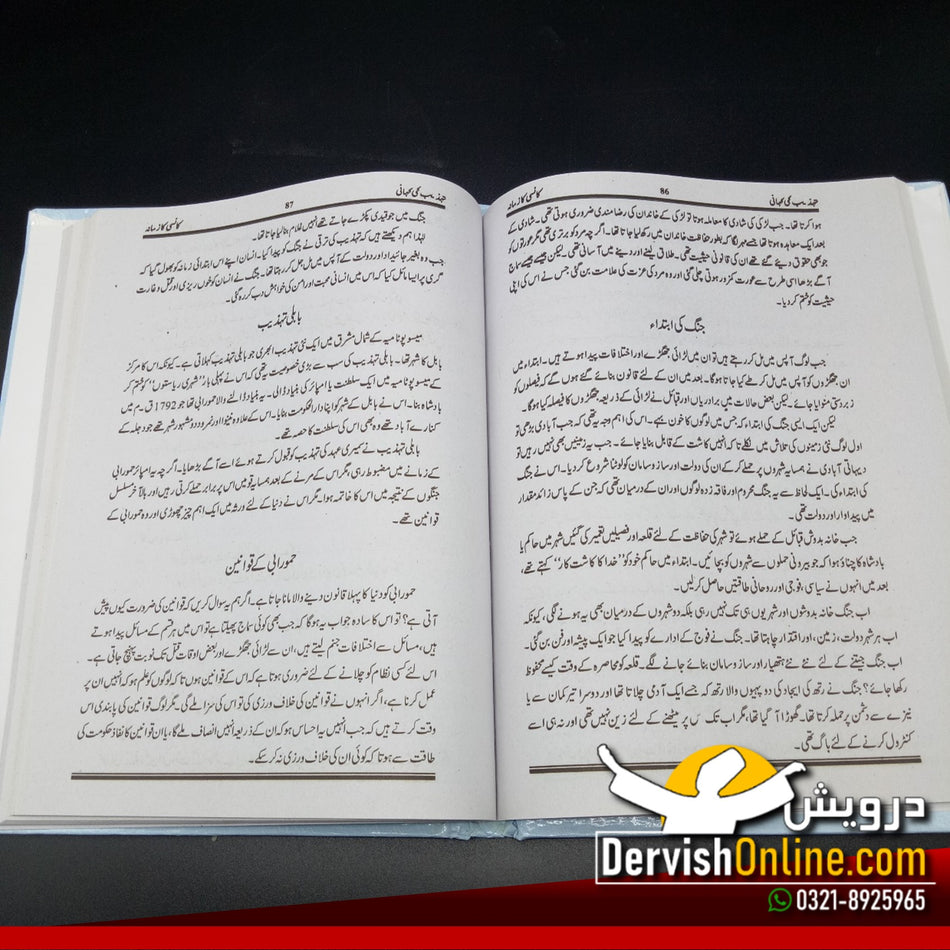 تہذیب کی کہانی
86
کانسی کا زمانہ
ہوا کرتا تھا۔ جب لڑکی کی شادی کا معاملہ ہوتا تو لڑکے کے خاندان کی رضا مندی ضروری ہوتی تھی۔ شادی کے
بعد ایک معاہدہ ہوتا تھا جسے مہر اگا کہ بطور حفاظت خاندان میں رکھ لیا جاتا تھا۔ اگرچہ مرد کو برتری تھی مگر عورتوں کو
جو بھی حقوق دیئے گئے تھے ان کی قانونی حیثیت تھی۔ طلاق لینے اور دینے میں آسانی تھی۔ لیکن جیسے جیسے سماج
آگے بڑھا اسی طرح سے عورت کمزور ہوتی چلی گئی اور وہ مرد کی عزت کی علامت بن گئی جس نے اس کی اپنی
حیثیت کو ختم کر دیا۔
جنگ کی ابتداء
جب لوگ آپس میں مل کر رہتے ہیں تو ان میں لڑائی جھگڑے اور اختلافات پیدا ہوتے ہیں۔ ابتداء میں
ان جھگڑوں کو آپس میں مل کر طے کیا جاتا ہوگا۔ بعد میں ان کے لئے قانون بنائے گئے ہوں گے کہ فیصلوں کو
زبردستی منوایا جائے۔ لیکن بعض حالات میں برادریاں اور قبائل نے لڑائی کے ذریعہ جھگڑوں کا فیصلہ کیا ہوگا۔
لیکن ایک ایسی جنگ کی ابتداء کہ جس میں لوگوں کا خون بہا ہے۔ اس کی اہم وجہ یہ تھی کہ جب آبادی بڑھی تو
اول لوگ نئی زمینوں کی تلاش میں نکلے تاکہ انہیں کاشت کے قابل بنایا جائے۔ جب یہ زمینیں بھی نہیں رہیں تو
دیہاتی آبادی نے ہمسایہ شہروں پر حملے کر کے ان کی دولت اور ساز و سامان کو لوٹنا شروع کر دیا۔ اس نے جنگ
کی ابتداء کی۔ ایک لحاظ سے یہ جنگ محروم اور فاقہ زدہ لوگوں اور ان کے درمیان تھی کہ جن کے پاس زائد مقدار
میں پیداوار اور دولت تھی۔
جب خانہ بدوش قبائل کے حملے ہوئے تو شہر کی حفاظت کے لئے قلعہ اور فصیلیں تعمیر کی گئیں شہر میں حاکم یا
بادشاہ کا چناؤ ہوا کہ جو بیرونی حملوں سے شہروں کو بچائیں۔ ابتداء میں حاکم خود کو ”خدا کا کاشت کار“ کہتے تھے،
بعد میں انہوں نے سیاسی، فوجی اور روحانی طاقتیں حاصل کر لیں۔
اب جنگ خانہ بدوشوں اور شہریوں ہی تک نہیں رہی بلکہ دو شہروں کے درمیان بھی یہ ہونے لگی، کیونکہ
اب ہر شہر دولت، زمین، اور اقتدار چاہتا تھا۔ جنگ نے فوج کے ادارے کو پیدا کیا جو ایک پیشہ اور فن بن گئی۔
اب جنگ جیتنے کے لئے نئے نئے ہتھیار اور ساز و سامان بنائے جانے لگے۔ قلعہ کو محاصرہ کے وقت کیسے محفوظ
رکھا جائے؟ جنگ نے رتھ کی ایجاد کی دو پہیوں والا رتھ کہ جسے ایک آدمی چلاتا تھا اور دوسرا تیر کمان سے یا
نیزے سے دشمن پر حملہ کرتا تھا۔ گھوڑا آ گیا تھا، مگر اب تک اس پر بیٹھنے کے لئے زین نہیں تھی اور نہ ہی اسے
کنٹرول کرنے کے لئے باگ تھی۔
تہذیب کی کہانی
87
کانسی کا زمانہ
جنگ میں جو قیدی پکڑے جاتے تھے انہیں غلام بنا لیا جاتا تھا۔
لہٰذا ہم دیکھتے ہیں کہ تہذیب کی ترقی نے جنگ کو پیدا کیا۔ انسان اپنے اس ابتدائی زمانہ کو بھول گیا کہ
جب وہ بغیر جائیداد اور دولت کے آپس میں مل جل کر رہتا تھا۔ جنگ نے انسان کو خوں ریزی اور قتل و غارت
گری پر ایسا مائل کیا کہ اس میں انسانی محبت اور امن کی خواہش دب کر رہ گئی۔
بابلی تہذیب
میسوپوٹامیہ کے شمال مشرق میں ایک نئی تہذیب ابھری جو بابلی تہذیب کہلاتی ہے۔ کیونکہ اس کا مرکز
بابل کا شہر تھا۔ بابلی تہذیب کی سب سے بڑی خصوصیت یہ تھی کہ اس نے پہلی بار ”شہری ریاستوں“ کو ختم کر
کے میسوپوٹامیہ میں ایک سلطنت یا امپائر کی بنیاد ڈالی۔ یہ بنیاد ڈالنے والا حمورابی تھا جو 1792 ق۔م میں
بادشاہ بنا۔ اس نے بابل کے شہر کو اپنا دارالحکومت بنایا۔ اس کے علاوہ نینوا اور نمرود دو مشہور شہر تھے جو دجلہ کے
کنارے آباد تھے وہ بھی اس کی سلطنت کا حصہ تھے۔
بابلی تہذیب نے سمیری عہد کی تہذیب کو قبول کرتے ہوئے اسے آگے بڑھایا۔ اگرچہ یہ امپائر حمورابی
کے زمانے میں مضبوط رہی، مگر اس کے مرنے کے بعد ہمسایہ قومیں اس پر برابر حملے کرتی رہیں اور بالآخر مسلسل
جنگوں کے نتیجہ میں اس کا خاتمہ ہوا۔ مگر اس نے دنیا کے لئے ورثہ میں ایک اہم چیز چھوڑی اور وہ حمورابی کے
قوانین تھے۔
حمورابی کے قوانین
حمورابی کو دنیا کا پہلا قانون دینے والا مانا جاتا ہے۔ اگر ہم یہ سوال کریں کہ قوانین کی ضرورت کیوں پیش
آتی ہے؟ تو اس کا سادہ جواب یہ ہوگا کہ جب بھی کوئی سماج پھیلتا ہے تو اس میں ہر قسم کے مسائل پیدا ہوتے
ہیں، مسائل سے اختلافات جنم لیتے ہیں، ان سے لڑائی جھگڑے اور بعض اوقات قتل تک نوبت پہنچ جاتی ہے۔
اس لئے کسی نظام کو چلانے کے لئے ضروری ہوتا ہے کہ اس کے قوانین ہوں تاکہ لوگوں کو علم ہو کہ انہیں ان پر
عمل کرنا ہے، اگر انہوں نے قوانین کی خلاف ورزی کی تو اس کی سزا ملے گی۔ مگر لوگ قوانین کی پابندی اس
وقت کرتے ہیں کہ جب انہیں یہ احساس ہو کہ ان کے ذریعہ انہیں انصاف ملے گا، یا ان قوانین کا نفاذ حکومت کی
طاقت سے ہو تاکہ کوئی ان کی خلاف ورزی نہ کر سکے۔
درویش
DervishOnline.com
0321-8925965